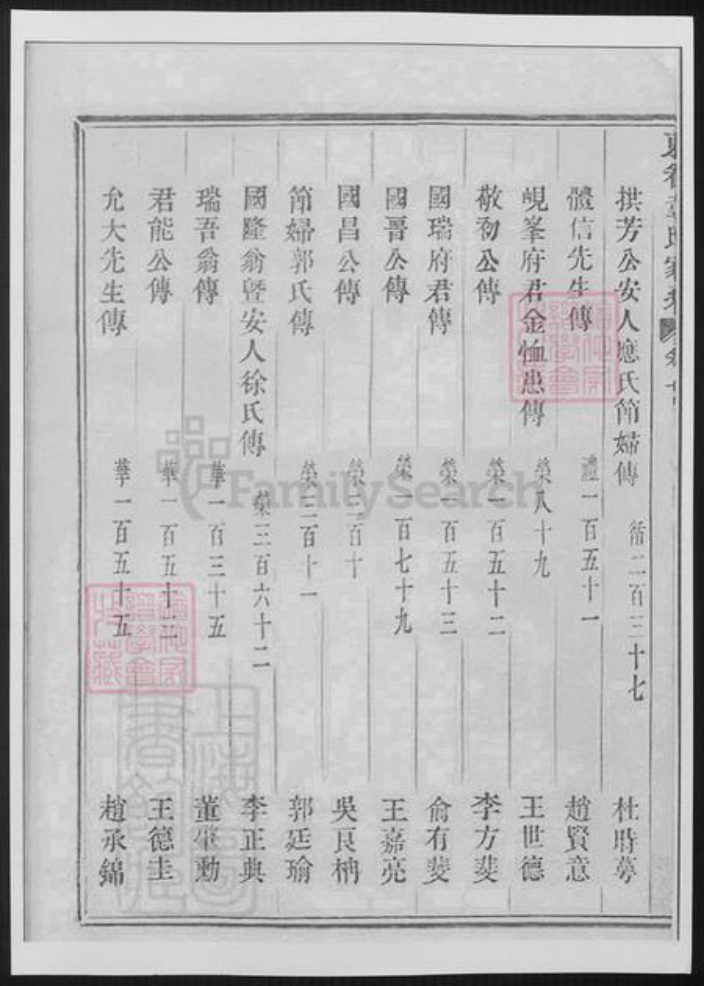 氏家
拱芳公安人應氏節婦傳 衛二百三十七 杜時
體信先生傳 禮一百五十一 趙賢意
峴峯府君金恤患傳 榮八十九 王世德
敬初公傳 榮一百五十二 李方斐
國瑞府君傳 榮一百五十三 俞有斐
國晉公傳 榮一百七十九 王嘉亮
國昌公傳 榮二百十 吳良柟
節婦郭氏傳 榮三百十一 郭廷瑜
國隆翁暨安人徐氏傳 榮三百六十二 李正典
瑞吾翁傳 華一百三十五 董肇勳
君能公傳 華一百五十三 王德圭
允大先生傳 華一百五十五 趙承錦
FamilySearch